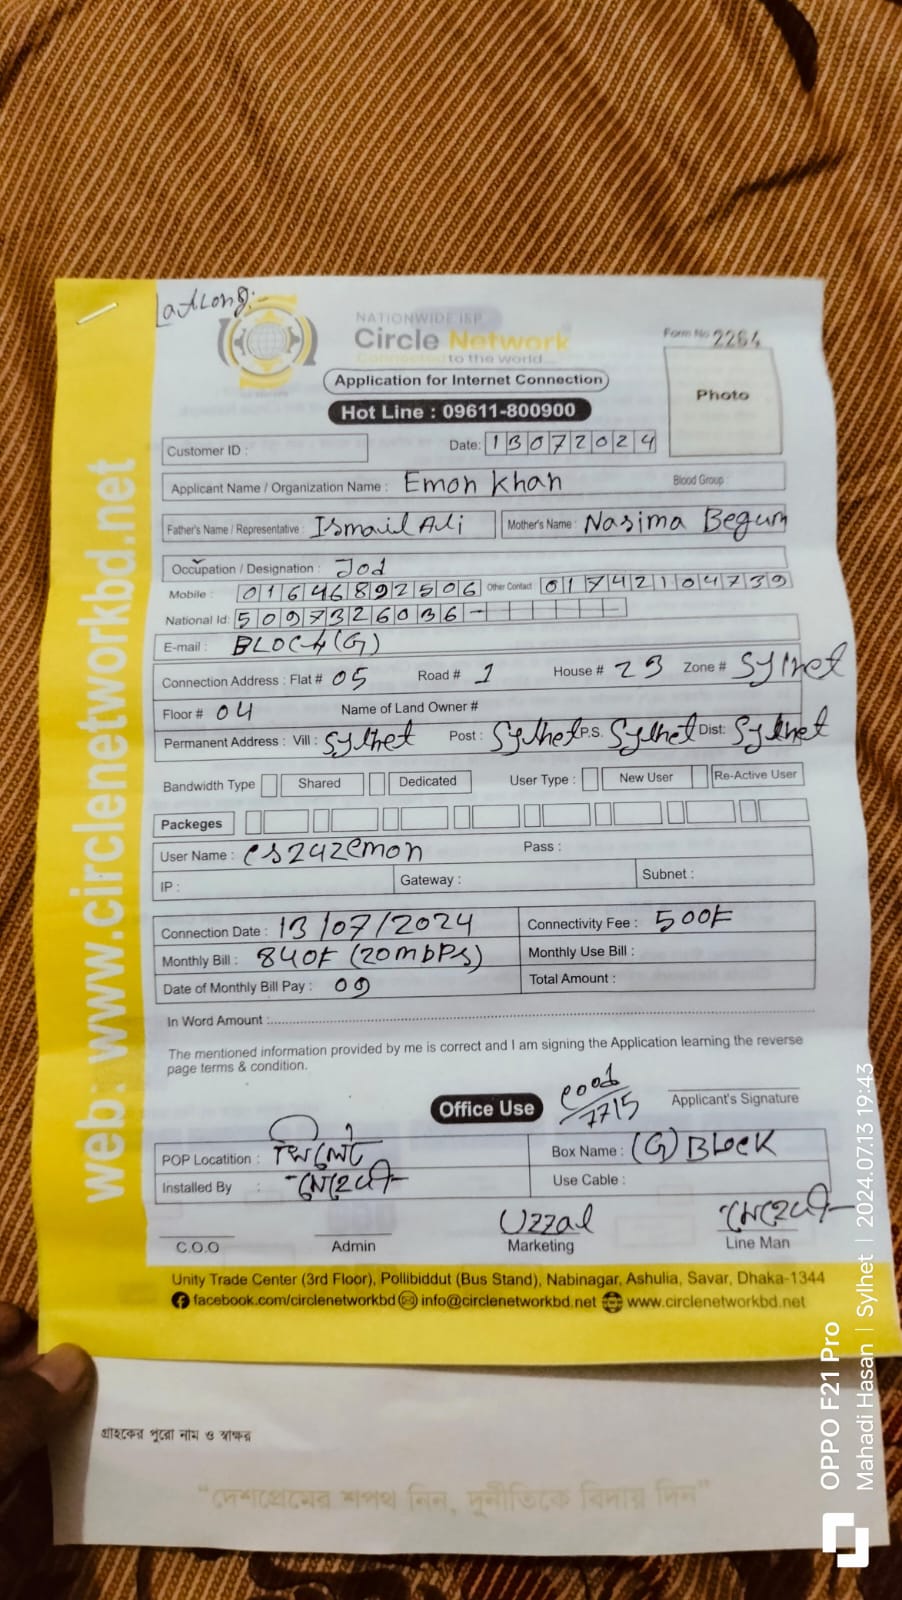 LatLong:-
NATIONWIDE ISP
Circle Network
Connected to the world
Form No 2264
Photo
Application for Internet Connection
Hot Line : 09611-800900
Customer ID :
Date: 13072024
Applicant Name / Organization Name : Emon Khan Blood Group :
Father's Name / Representative : Ismail Ali Mother's Name : Nasima Begum
Occupation / Designation : Jod
Mobile : 01646892506 Other Contact 01742104739
National Id: 5097326036-
E-mail : BLOCK(G)
Connection Address : Flat # 05 Road # 1 House # 23 Zone # Sylhet
Floor # 04 Name of Land Owner #
Permanent Address : Vill : Sylhet Post : Sylhet P.S. Sylhet Dist: Sylhet
Bandwidth Type Shared Dedicated User Type : New User Re-Active User
Packeges
User Name : cs242emon Pass :
IP : Gateway : Subnet :
Connection Date : 13/07/2024 Connectivity Fee : 500৳
Monthly Bill : 840৳ (20mbps) Monthly Use Bill :
Date of Monthly Bill Pay : 09 Total Amount :
In Word Amount :
The mentioned information provided by me is correct and I am signing the Application learning the reverse
page terms & condition.
Office Use
7715
Applicant's Signature
POP Locatition : Box Name : (G) Block
Installed By : মেহেদী Use Cable :
Uzzal মেহেদী
C.O.O Admin Marketing Line Man
Unity Trade Center (3rd Floor), Pollibiddut (Bus Stand), Nabinagar, Ashulia, Savar, Dhaka-1344
facebook.com/circlenetworkbd info@circlenetworkbd.net www.circlenetworkbd.net
web: www.circlenetworkbd.net
গ্রাহকের পুরো নাম ও স্বাক্ষর
“দেশপ্রেমের শপথ নিন, দুর্নীতিকে বিদায় দিন”
OPPO F21 Pro
Mahadi Hasan | Sylhet | 2024.07.13 19:43